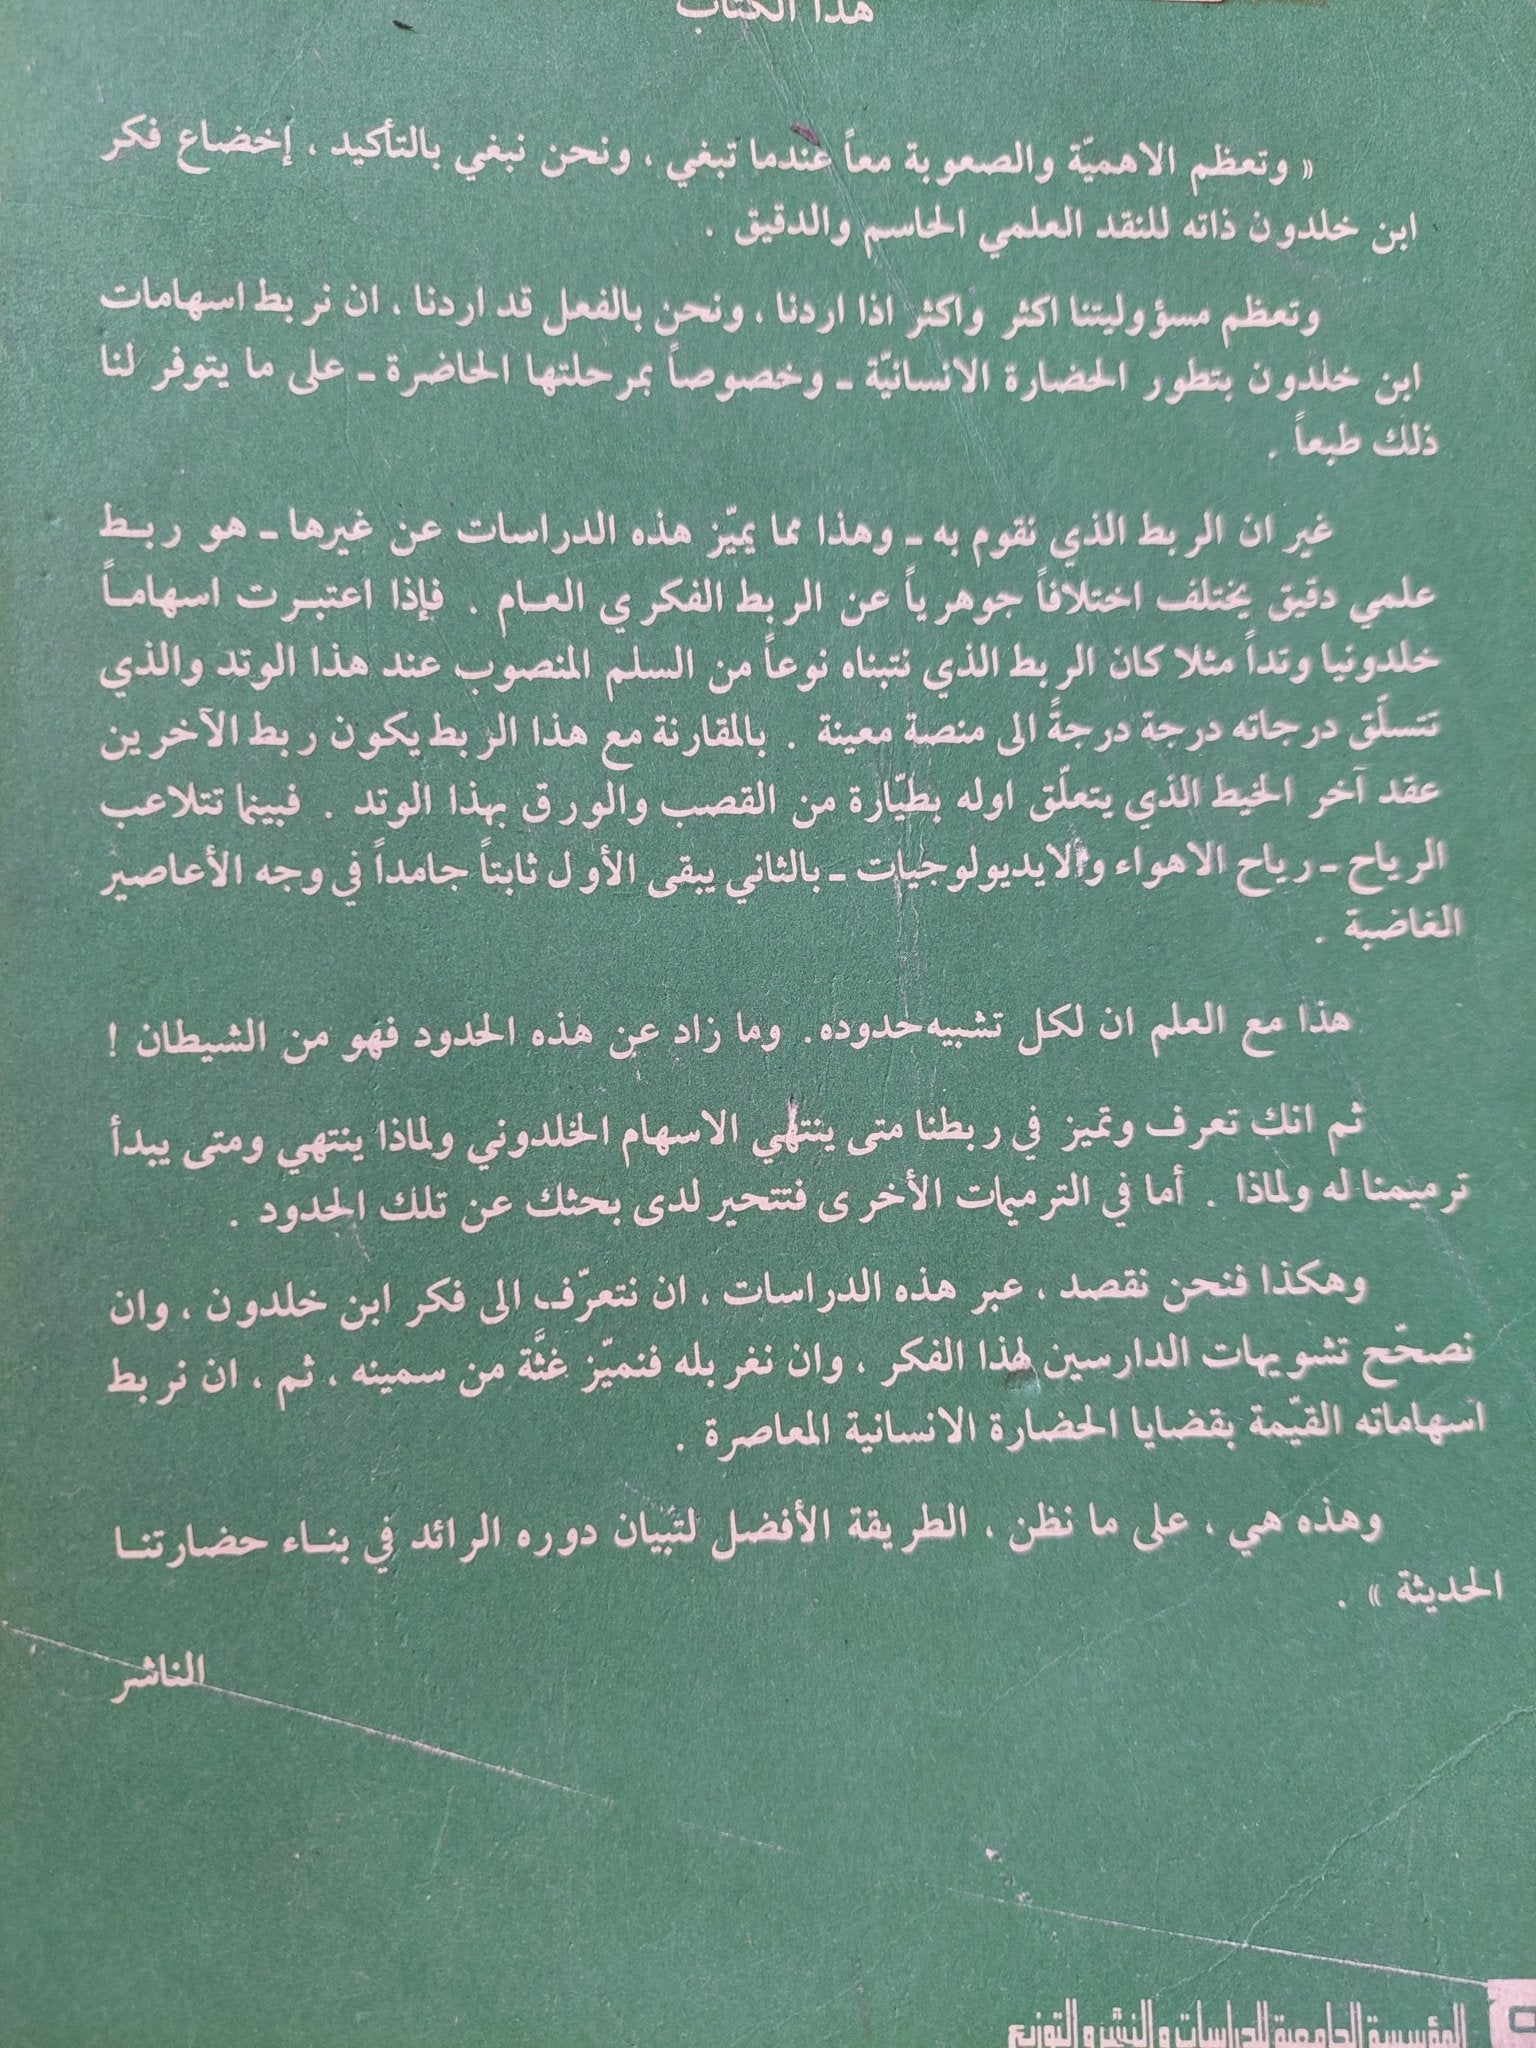 هذا الكتاب
« وتعظم الاهميّة والصعوبة معاً عندما تبغي ، ونحن نبغي بالتأكيد ، إخضاع فكر
ابن خلدون ذاته للنقد العلمي الحاسم والدقيق .
وتعظم مسؤوليتنا اكثر واكثر اذا اردنا ، ونحن بالفعل قد اردنا ، ان نربط اسهامات
ابن خلدون بتطور الحضارة الانسانيّة ـ وخصوصاً بمرحلتها الحاضرة ـ على ما يتوفر لنا
ذلك طبعاً .
غير ان الربط الذي نقوم به ـ وهذا مما يميّز هذه الدراسات عن غيرها ـ هو ربط
علمي دقيق يختلف اختلافاً جوهرياً عن الربط الفكري العام . فإذا اعتبرت اسهاماً
خلدونيا وتداً مثلا كان الربط الذي نتبناه نوعاً من السلم المنصوب عند هذا الوتد والذي
تتسلّق درجاته درجة درجةً الى منصة معينة . بالمقارنة مع هذا الربط يكون ربط الآخرين
عقد آخر الخيط الذي يتعلّق اوله بطيّارة من القصب والورق بهذا الوتد . فبينما تتلاعب
الرياح ـ رياح الاهواء والايديولوجيات ـ بالثاني يبقى الأول ثابتاً جامداً في وجه الأعاصير
الغاضبة .
هذا مع العلم ان لكل تشبيه حدوده . وما زاد عن هذه الحدود فهو من الشيطان !
ثم انك تعرف وتميز في ربطنا متى ينتهي الاسهام الخلدوني ولماذا ينتهي ومتى يبدأ
ترميمنا له ولماذا . أما في الترميمات الأخرى فتتحير لدى بحثك عن تلك الحدود .
وهكذا فنحن نقصد ، عبر هذه الدراسات ، ان نتعرّف الى فكر ابن خلدون ، وان
نصحّح تشويهات الدارسين لهذا الفكر ، وان نغربله فنميّز غثَّة من سمينه ، ثم ، ان نربط
اسهاماته القيّمة بقضايا الحضارة الانسانية المعاصرة .
وهذه هي ، على ما نظن ، الطريقة الأفضل لتبيان دوره الرائد في بناء حضارتنا
الحديثة » .
الناشر
المؤسسة الجامعية للدراسات والنشر والتوزيع